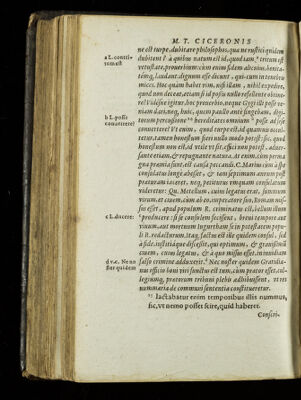 M. T. CICERONIS
ne est turpe, dubitare philosophos, quæ ne rustici quidem
a L. contri- dubitent? à quibus natum est id, quod iam a tritum est
tum est vetustate, prouerbium: cùm enim fidem alicuius, bonita-
témq, laudant, dignum esse dicunt, quicum in tenebris
mices. Hoc quàm habet vim, nisi illam, nihil expedire,
quod non deceat, etiamsi id possis nullo refellente obtine-
re? Vidésne igitur, hoc prouerbio, neque Gygi illi posse ve-
niam dari, neq, huic, quem paullo antè fingebam, digi-
b L. posse torum percussione hereditates omnium b posse ad se
conuerrere? conuertere? Vt enim, quod turpe est, id quamuis occul-
tetur, tamen honestum fieri nullo modo potest: sic, quod
honestum non est, id vtile vt sit, effici non potest, aduer-
sante etiam, & repugnante natura. At enim, cùm perma-
gna præmia sunt, est causa peccandi. C. Marius cùm à spe
consulatus longè abesset, & iam septimum annum post
præturam iaceret, neq, petiturus vnquam consulatum
videretur: Qu. Metellum, cuius legatus erat, summum
virum, et ciuem, cùm ab eo, imperatore suo, Romam mis-
sus esset, apud populum R. criminatus est, bellum illum
c L. ducere: c producere: si se consulem fecissent, breui tempore aut
viuum, aut mortuum Iugurtham se in potestatem popu-
li R. redacturum. Itaq, factus est ille quidem consul, sed
à fide, iustitiáque discessit, qui optimum, & grauissimū
ciuem, cuius legatus, & a quo missus esset, in inuidiam
d v.c. Ne no falso crimine adduxerit. d Nec noster quidem Gratidia-
ster quidem nus officio boni viri functus est tum, cùm prætor esset, col-
legiumq, prætorum tribuni plebis adhibuissent, vt res
nummaria de communi sententia constitueretur.
Iactabatur enim temporibus illis nummus,
sic, vt nemo posset scire, quid haberet.
Conscri-